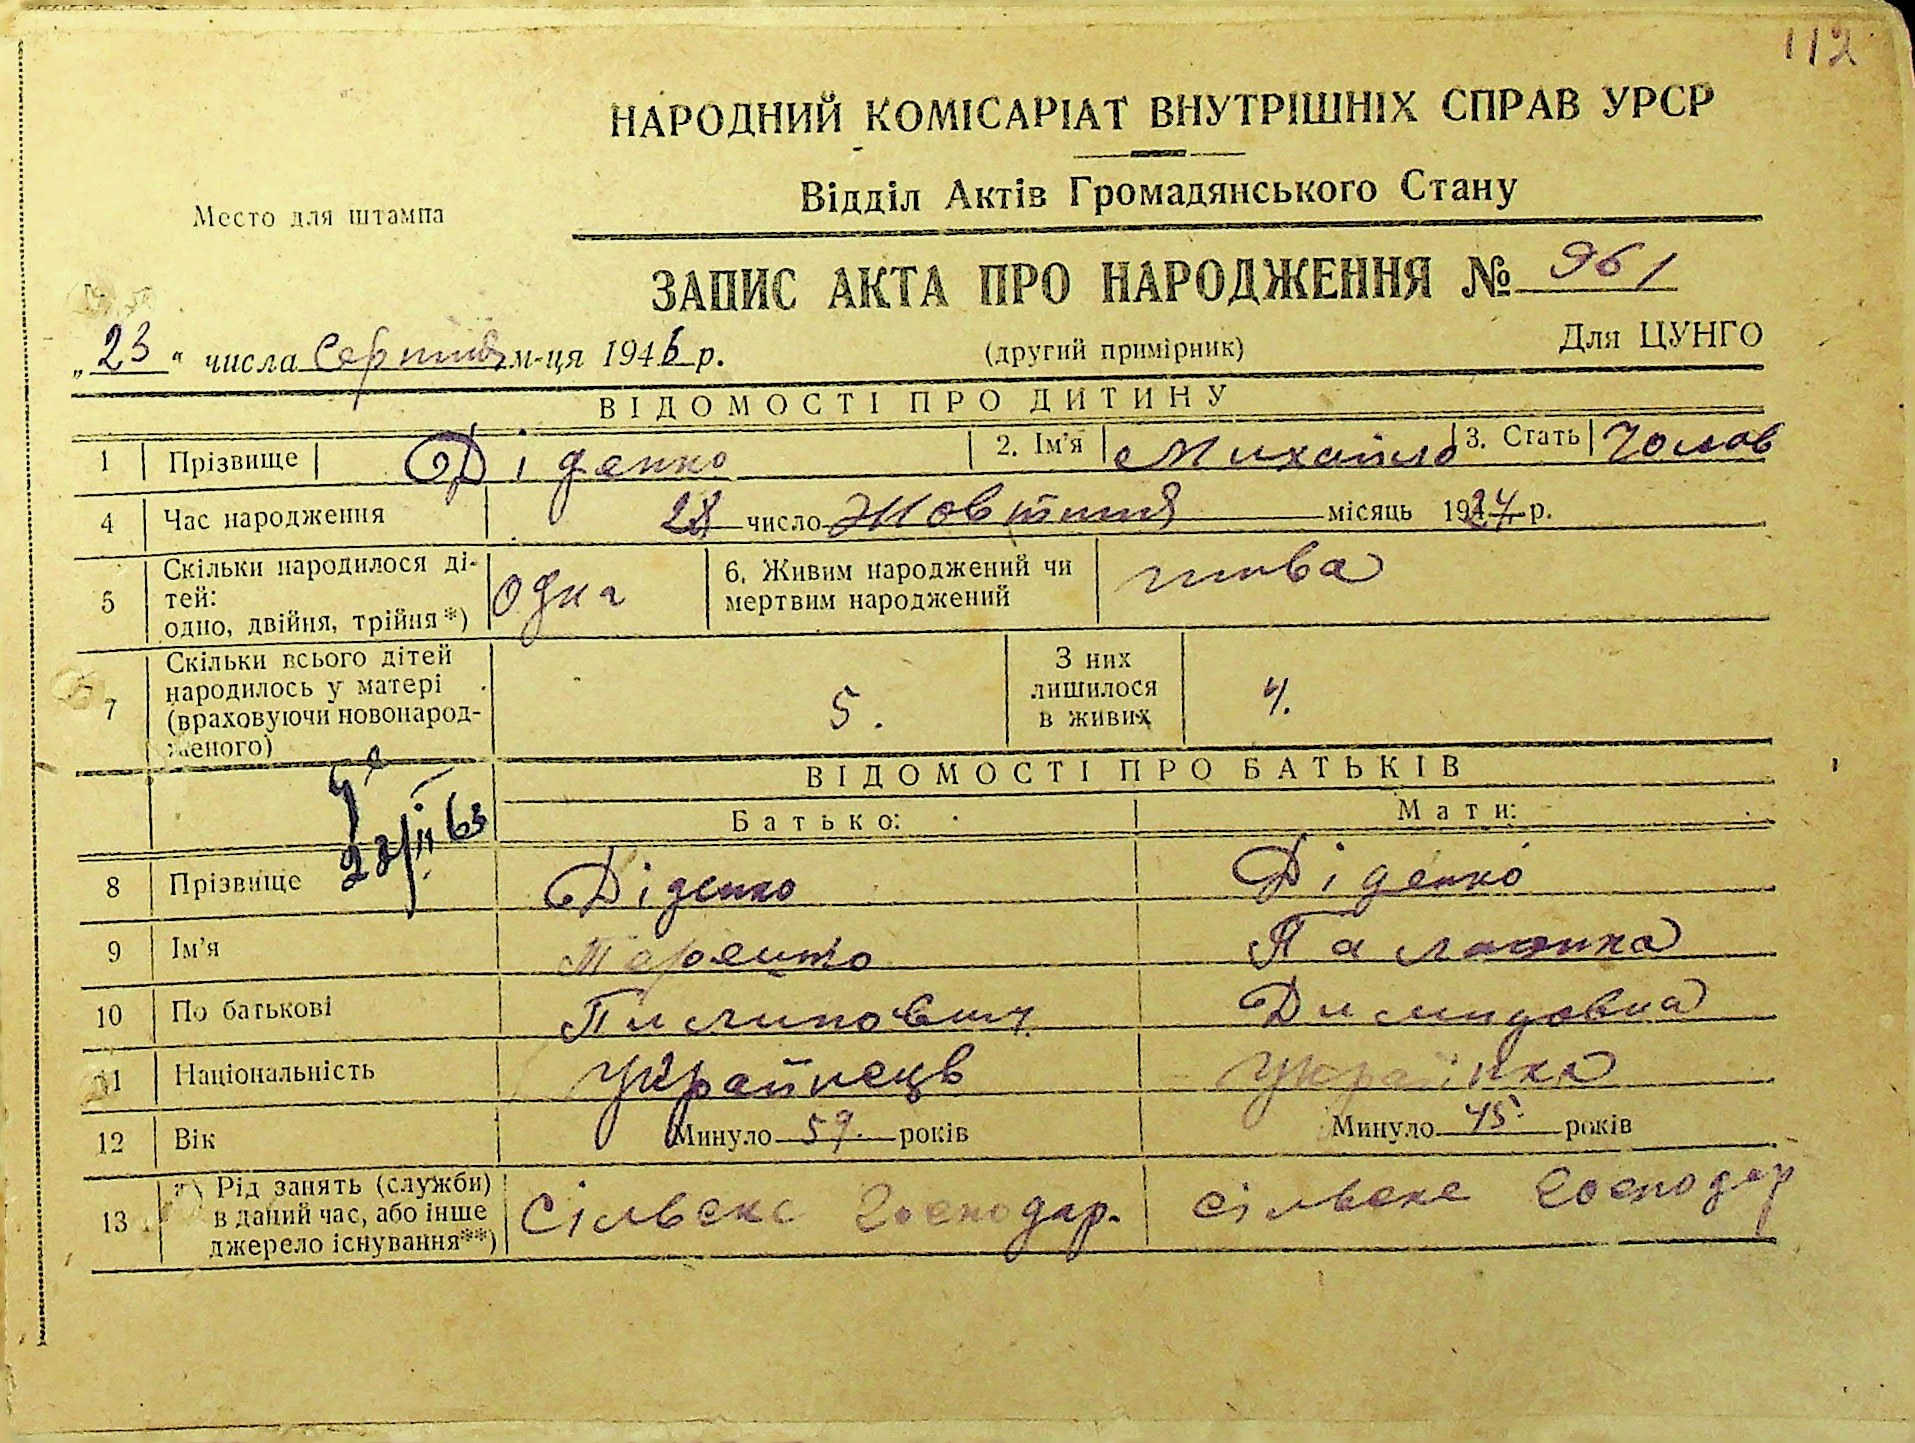 112
НАРОДНИЙ КОМІСАРІАТ ВНУТРІШНІХ СПРАВ УРСР
Відділ Актів Громадянського Стану
Место для штампа
ЗАПИС АКТА ПРО НАРОДЖЕННЯ № 961
„23“ числа Серпня м-ця 1946 р. (другий примірник) Для ЦУНГО
ВІДОМОСТІ ПРО ДИТИНУ
1 Прізвище Діденко 2. Ім'я Михайло 3. Стать Чолов
4 Час народження 28 число Жовтня місяць 1924 р.
5 Скільки народилося ді-
тей:
одно, двійня, трійня*) одна 6. Живим народжений чи
мертвим народжений жива
7 Скільки всього дітей
народилось у матері
(враховуючи новонарод-
женого) 5. З них
лишилося
в живих 4.
ВІДОМОСТІ ПРО БАТЬКІВ
Батько: Мати:
8 Прізвище Діденко Діденко
9 Ім'я Терешко Палажка
10 По батькові Пилипович Демидовна
11 Національність Українець Українка
12 Вік Минуло 59 років Минуло 45 років
13 Рід занять (служби)
в даний час, або інше
джерело існування**) Сільске господар. сільске господар